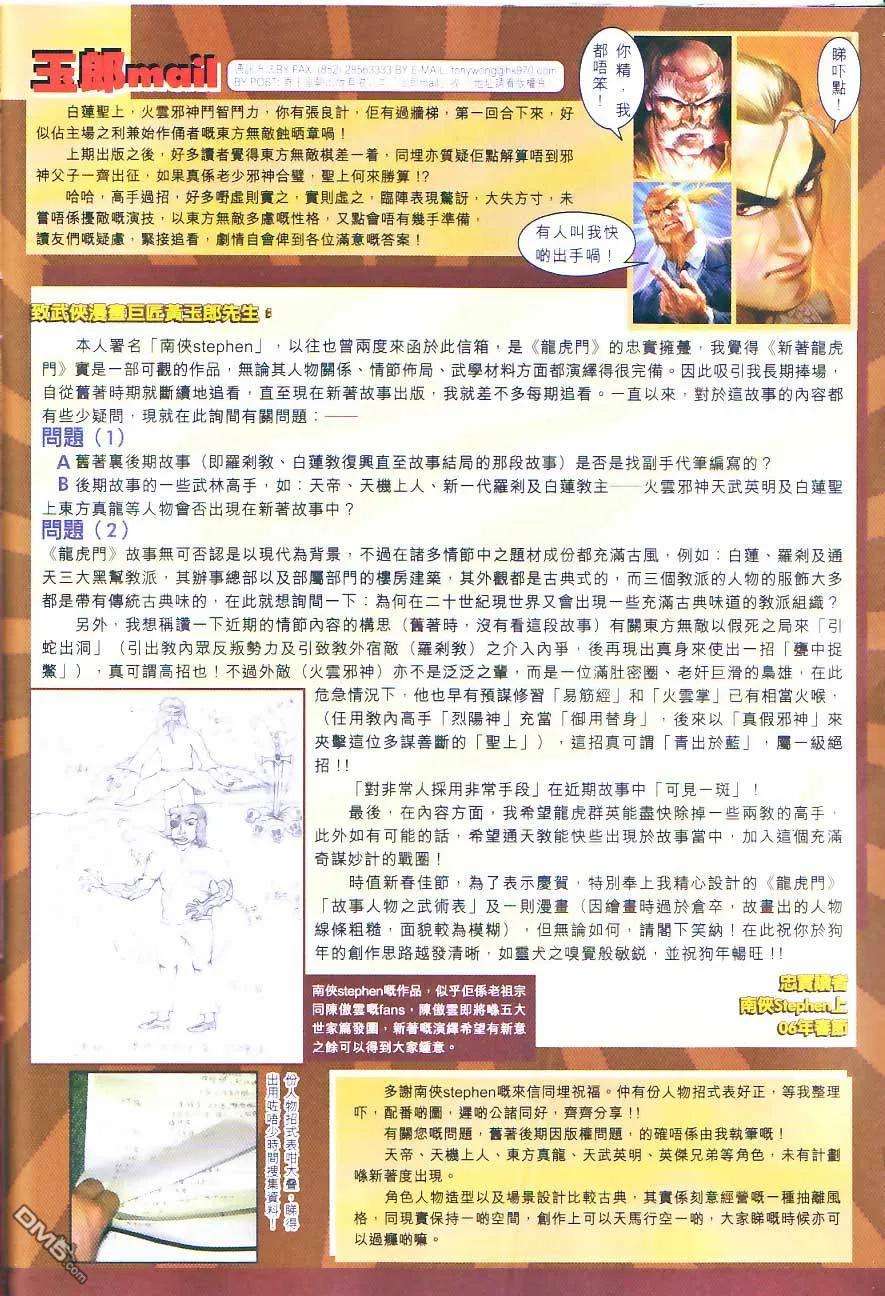 玉郎mail
BY FAX: (852) 28563333 BY E-MAIL: tonywong@hk970.com
BY POST:
白蓮聖上，火雲邪神鬥智鬥力，你有張良計，佢有過牆梯，第一回合下來，好
似佔主場之利兼始作俑者嘅東方無敵蝕晒章喎！
上期出版之後，好多讀者覺得東方無敵棋差一着，同埋亦質疑佢點解算唔到邪
神父子一齊出征，如果真係老少邪神合璧，聖上何來勝算!?
哈哈，高手過招，好多嘢虛則實之，實則虛之，臨陣表現驚訝，大失方寸，未
嘗唔係擾敵嘅演技，以東方無敵多慮嘅性格，又點會唔有幾手準備，
讀友們嘅疑慮，緊接追看，劇情自會俾到各位滿意嘅答案！
你精，我
都唔笨！
睇吓點！
有人叫我快
啲出手喎！
致武俠漫畫巨匠黃玉郎先生：
本人署名「南俠stephen」，以往也曾兩度來函於此信箱，是《龍虎門》的忠實擁躉，我覺得《新著龍虎
門》實是一部可觀的作品，無論其人物關係、情節佈局、武學材料方面都演繹得很完備。因此吸引我長期捧場，
自從舊著時期就斷續地追看，直至現在新著故事出版，我就差不多每期追看。一直以來，對於這故事的內容都
有些少疑問，現就在此詢問有關問題：——
問題（1）
A 舊著裏後期故事（即羅剎教、白蓮教復興直至故事結局的那段故事）是否是找副手代筆編寫的？
B 後期故事的一些武林高手，如：天帝、天機上人、新一代羅剎及白蓮教主——火雲邪神天武英明及白蓮聖
上東方真龍等人物會否出現在新著故事中？
問題（2）
《龍虎門》故事無可否認是以現代為背景，不過在諸多情節中之題材成份都充滿古風，例如：白蓮、羅剎及通
天三大黑幫教派，其辦事總部以及部屬部門的樓房建築，其外觀都是古典式的，而三個教派的人物的服飾大多
都是帶有傳統古典味的，在此就想詢問一下：為何在二十世紀現世界又會出現一些充滿古典味道的教派組織？
另外，我想稱讚一下近期的情節內容的構思（舊著時，沒有看這段故事）有關東方無敵以假死之局來「引
蛇出洞」（引出教內眾反叛勢力及引致教外宿敵（羅剎教）之介入內爭，後再現出真身來使出一招「甕中捉
鱉」），真可謂高招也！不過外敵（火雲邪神）亦不是泛泛之輩，而是一位滿肚密圈、老奸巨滑的梟雄，在此
危急情況下，他也早有預謀修習「易筋經」和「火雲掌」已有相當火喉，
（任用教內高手「烈陽神」充當「御用替身」，後來以「真假邪神」來
夾擊這位多謀善斷的「聖上」），這招真可謂「青出於藍」，屬一級絕
招!!
「對非常人採用非常手段」在近期故事中「可見一斑」！
最後，在內容方面，我希望龍虎群英能盡快除掉一些兩教的高手，
此外如有可能的話，希望通天教能快些出現於故事當中，加入這個充滿
奇謀妙計的戰圈！
時值新春佳節，為了表示慶賀，特別奉上我精心設計的《龍虎門》
「故事人物之武術表」及一則漫畫（因繪畫時過於倉卒，故畫出的人物
線條粗糙，面貌較為模糊），但無論如何，請閣下笑納！在此祝你於狗
年的創作思路越發清晰，如靈犬之嗅覺般敏銳，並祝狗年暢旺!!
忠實讀者
南俠Stephen上
06年春節
南俠stephen嘅作品，似乎佢係老祖宗
同陳傲雲嘅fans，陳傲雲即將喺五大
世家篇發圍，新著嘅演繹希望有新意
之餘可以得到大家鍾意。
份人物招式表咁大疊，睇得
出用咗唔少時間搜集資料！
多謝南俠stephen嘅來信同埋祝福。仲有份人物招式表好正，等我整理
吓，配番啲圖，遲啲公諸同好，齊齊分享!!
有關您嘅問題，舊著後期因版權問題，的確唔係由我執筆嘅！
天帝、天機上人、東方真龍、天武英明、英傑兄弟等角色，未有計劃
喺新著度出現。
角色人物造型以及場景設計比較古典，其實係刻意經營嘅一種抽離風
格，同現實保持一啲空間，創作上可以天馬行空一啲，大家睇嘅時候亦可
以過癮啲嘛。
DM5.com